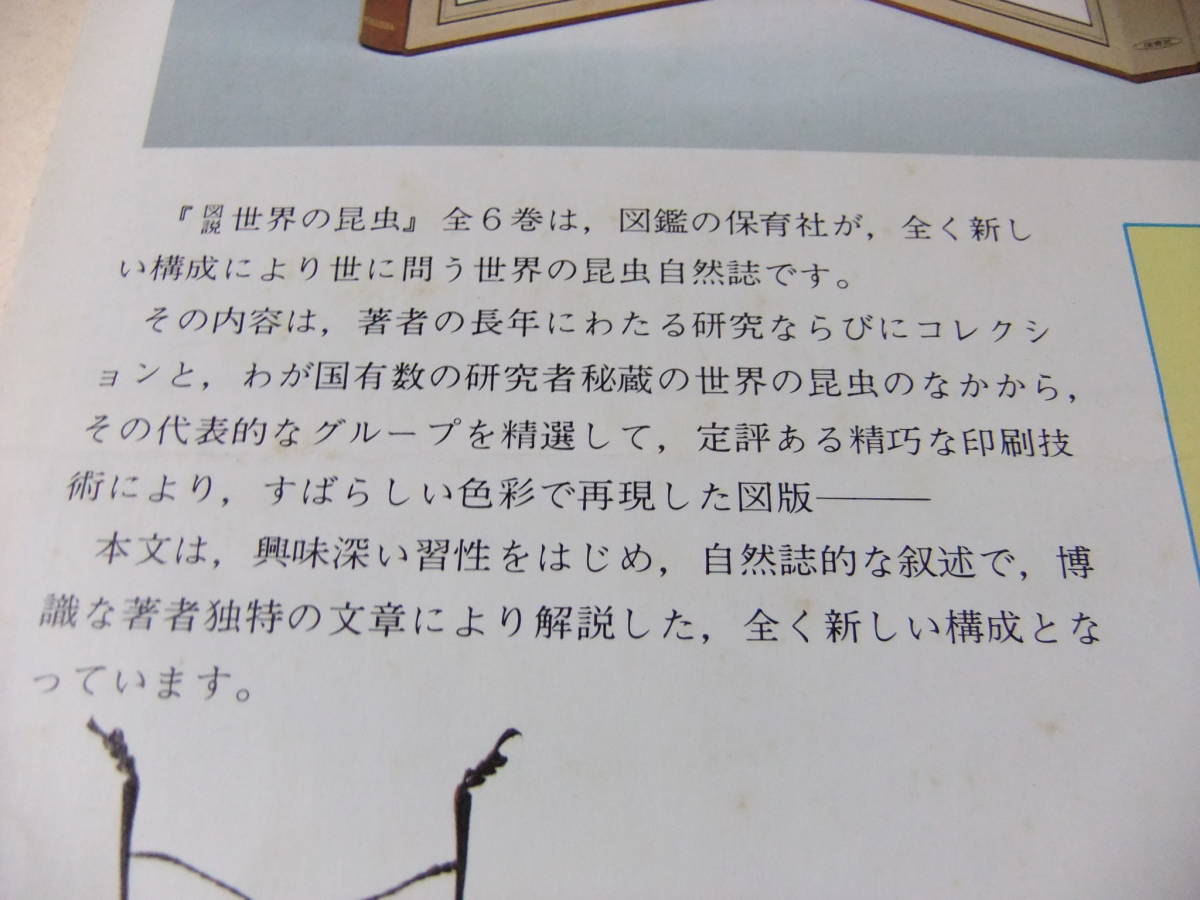 『図説世界の昆虫』全6巻は，図鑑の保育社が，全く新し
い構成により世に問う世界の昆虫自然誌です。
その内容は，著者の長年にわたる研究ならびにコレクシ
ョンと，わが国有数の研究者秘蔵の世界の昆虫のなかから，
その代表的なグループを精選して，定評ある精巧な印刷技
術により，すばらしい色彩で再現した図版———
本文は，興味深い習性をはじめ，自然誌的な叙述で，博
識な著者独特の文章により解説した，全く新しい構成とな
っています。